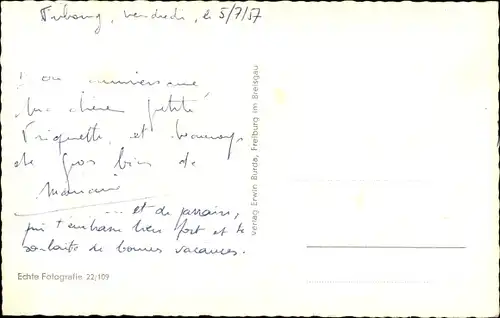 Fribourg, vendredi, le 5/7/57
Bon anniversaire
Ma chère petite
Friquette, et beaucoup
de gros bisous de
Mamie
... et de parrain,
qui t'embrasse bien fort et te
souhaite de bonnes vacances.
Verlag Erwin Burda, Freiburg im Breisgau
Echte Fotografie 22/109